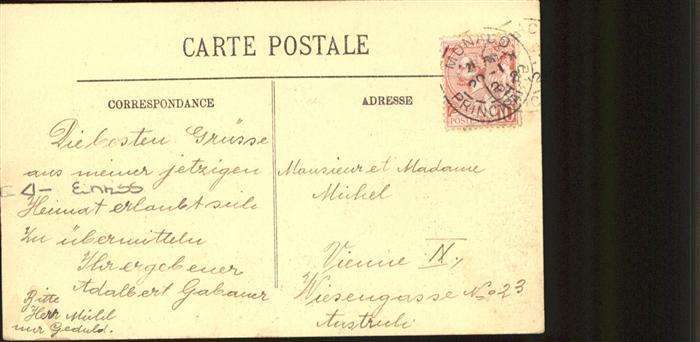 CARTE POSTALE
CORRESPONDANCE
Die besten Grüsse
aus meiner jetzigen
Heimat erlaubt sich
zu übermitteln
Ihr ergebener
Adalbert Gabauer
Bitte
Herr Michl
nur Geduld.
ADRESSE
Monsieur et Madame
Michel
Vienne IX,
Wiesengasse No 23
MONACO
PRINCIPAUTE
POSTES